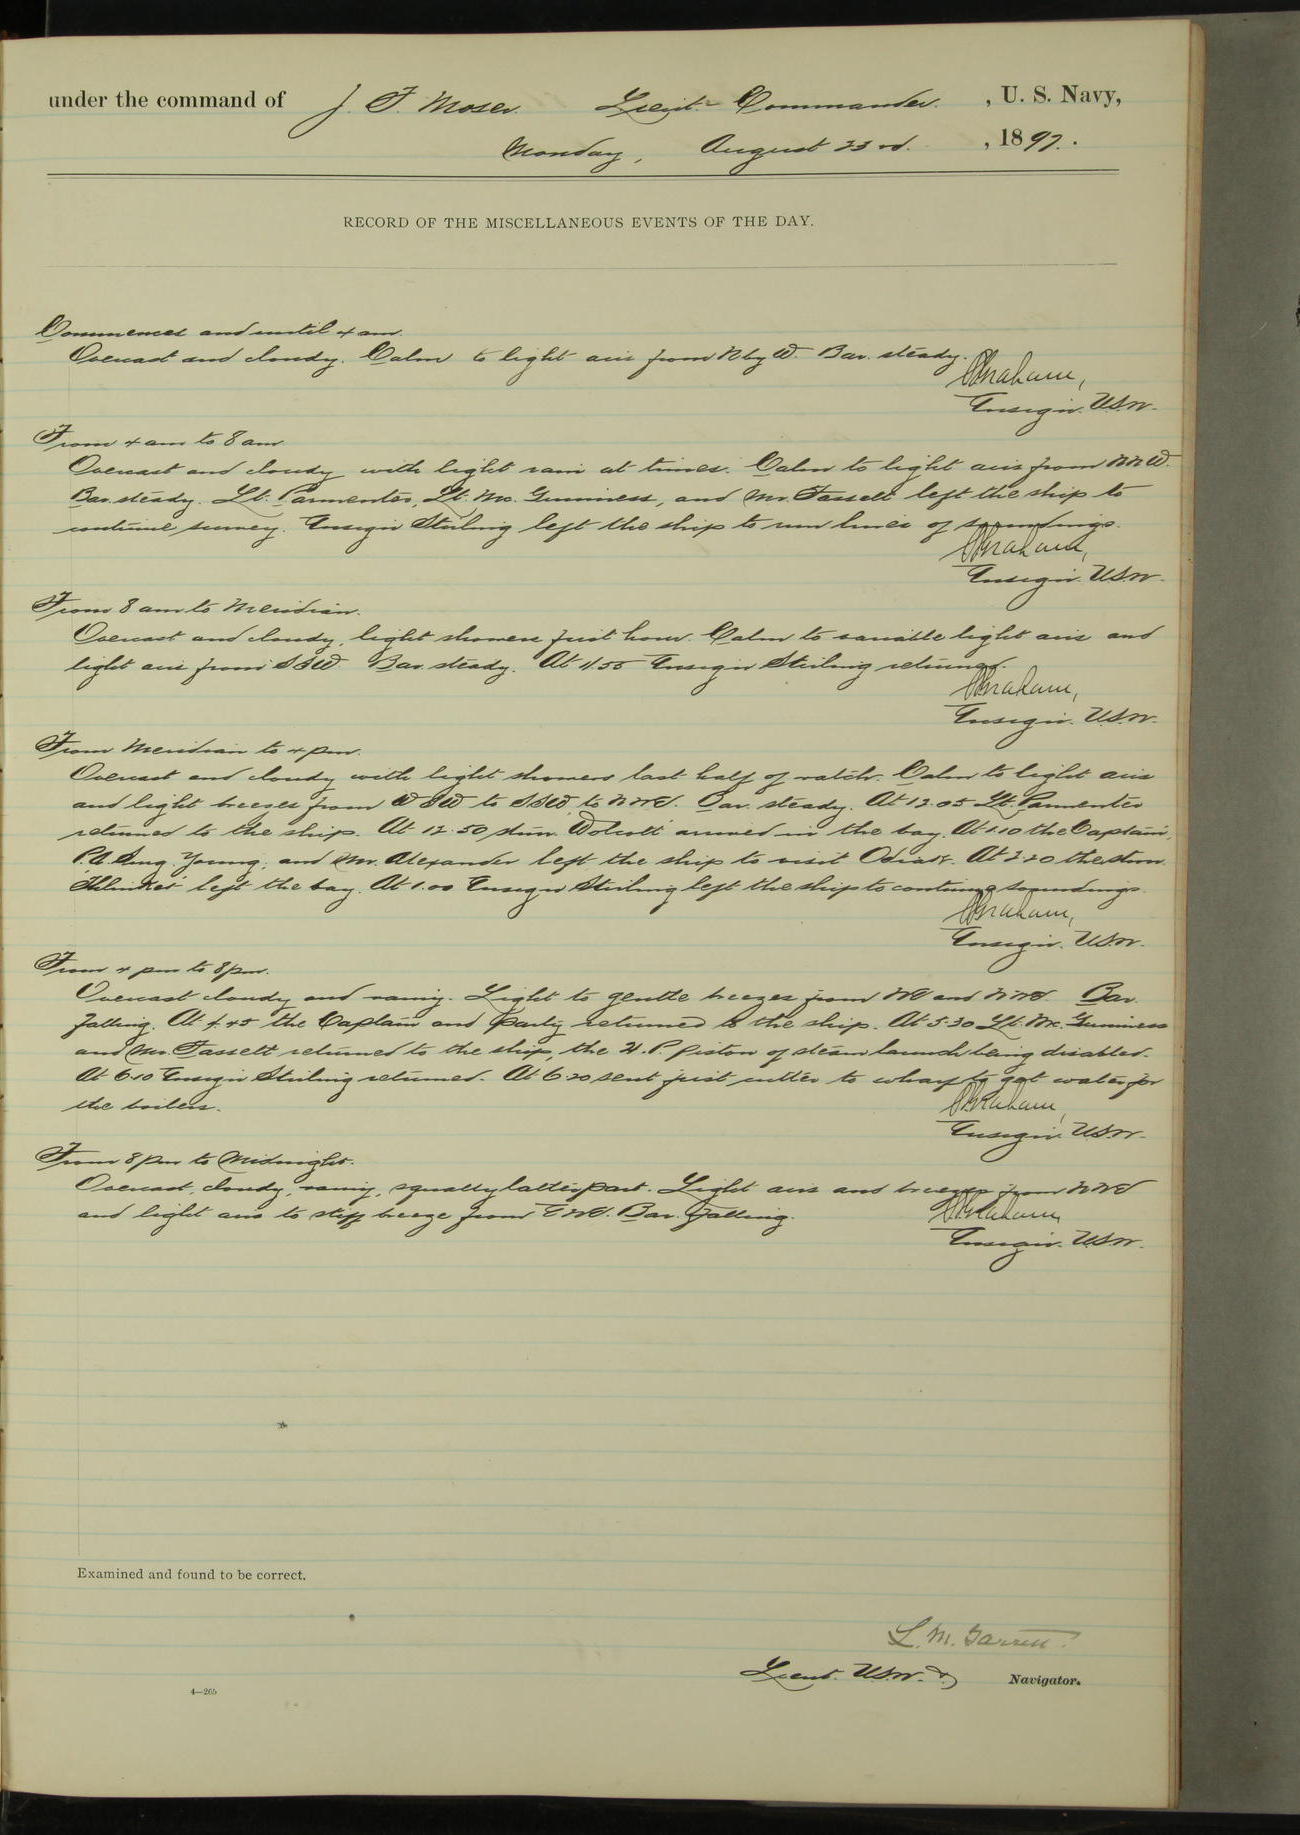 under the command of J. F. Moser. Lieut. Commander. , U. S. Navy,
Monday, August 23rd. , 1897.
RECORD OF THE MISCELLANEOUS EVENTS OF THE DAY.
Commences and until 4 am.
Overcast and cloudy. Calm to light airs from N by W. Bar. steady.
Graham,
Ensign. U.S.N.
From 4 am to 8 am.
Overcast and cloudy with light rain at times. Calm to light airs from NNW.
Bar. steady. Lt. Parmenter, Lt. Mc. Guinness, and Mr. Fassett left the ship to
continue survey. Ensign Stirling left the ship to run lines of soundings.
Graham,
Ensign. U.S.N.
From 8 am to Meridian.
Overcast and cloudy, light showers first hour. Calm to variable light airs and
light airs from SSW. Bar. steady. At 11.55 Ensign Stirling returned.
Graham,
Ensign. U.S.N.
From Meridian to 4 pm.
Overcast and cloudy with light showers last half of watch. Calm to light airs
and light breezes from WSW to SSW, to NNE. Bar. steady. At 12.05 Lt. Parmenter
returned to the ship. At 12.50 stmr. Wolcott arrived in the bay. At 1.10 the Captain,
P.A. Surg. Young, and Mr. Alexander left the ship to visit the stmr.
left the bay. At 1.00 Ensign Stirling left the ship to continue soundings.
Graham,
Ensign. U.S.N.
From 4 pm to 8 pm.
Overcast cloudy and rainy. Light to gentle breezes from NE and NNE. Bar.
falling. At 4.45 the Captain and party returned to the ship. At 5.30 Lt. Mc. Guinness
and Mr. Fassett returned to the ship, the H.P. piston of steam launch being disabled.
At 6.10 Ensign Stirling returned. At 6.20 sent first cutter to wharf to get water for
the boilers.
Graham,
Ensign. U.S.N.
From 8 pm to Midnight.
Overcast, cloudy, rainy, squally latter part. Light airs and breezes from NNE
and light airs to stiff breeze from ENE. Bar. falling.
Graham
Ensign. U.S.N.
Examined and found to be correct.
L. M. Garrett.
Lieut. U.S.N. & Navigator.
4—265